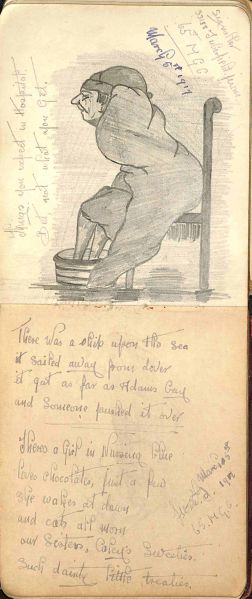 Things you expect in Hospital.
But not what you get.
March 6th 1917
65 M.G.C.
There was a ship upon the sea
it sailed away from dover
it got as far as Adams
and Someone pushed it over
Theres a Girl in Nursing Blue
loves chocolates, just a few
She wakes at dawn
and eats all morn
our Sisters, Caley's Sweeties.
Such dainty little treaties.
March
65. M.G.C.